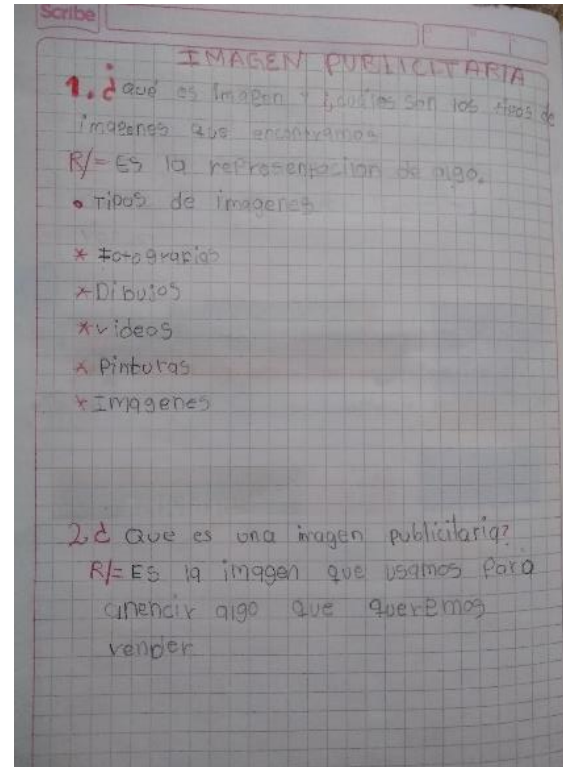 Scribe
IMAGEN PUBLICITARIA
1. ¿Qué es Imagen y ¿cuáles son los tipos de
imagenes que encontramos
R/= Es la representacion de algo.
• Tipos de imagenes
* Fotografias
* Dibujos
* videos
* Pinturas
* Imagenes
2. ¿ Que es una imagen publicitaria?
R/= Es la imagen que usamos Para
anencir algo que queremos
vender